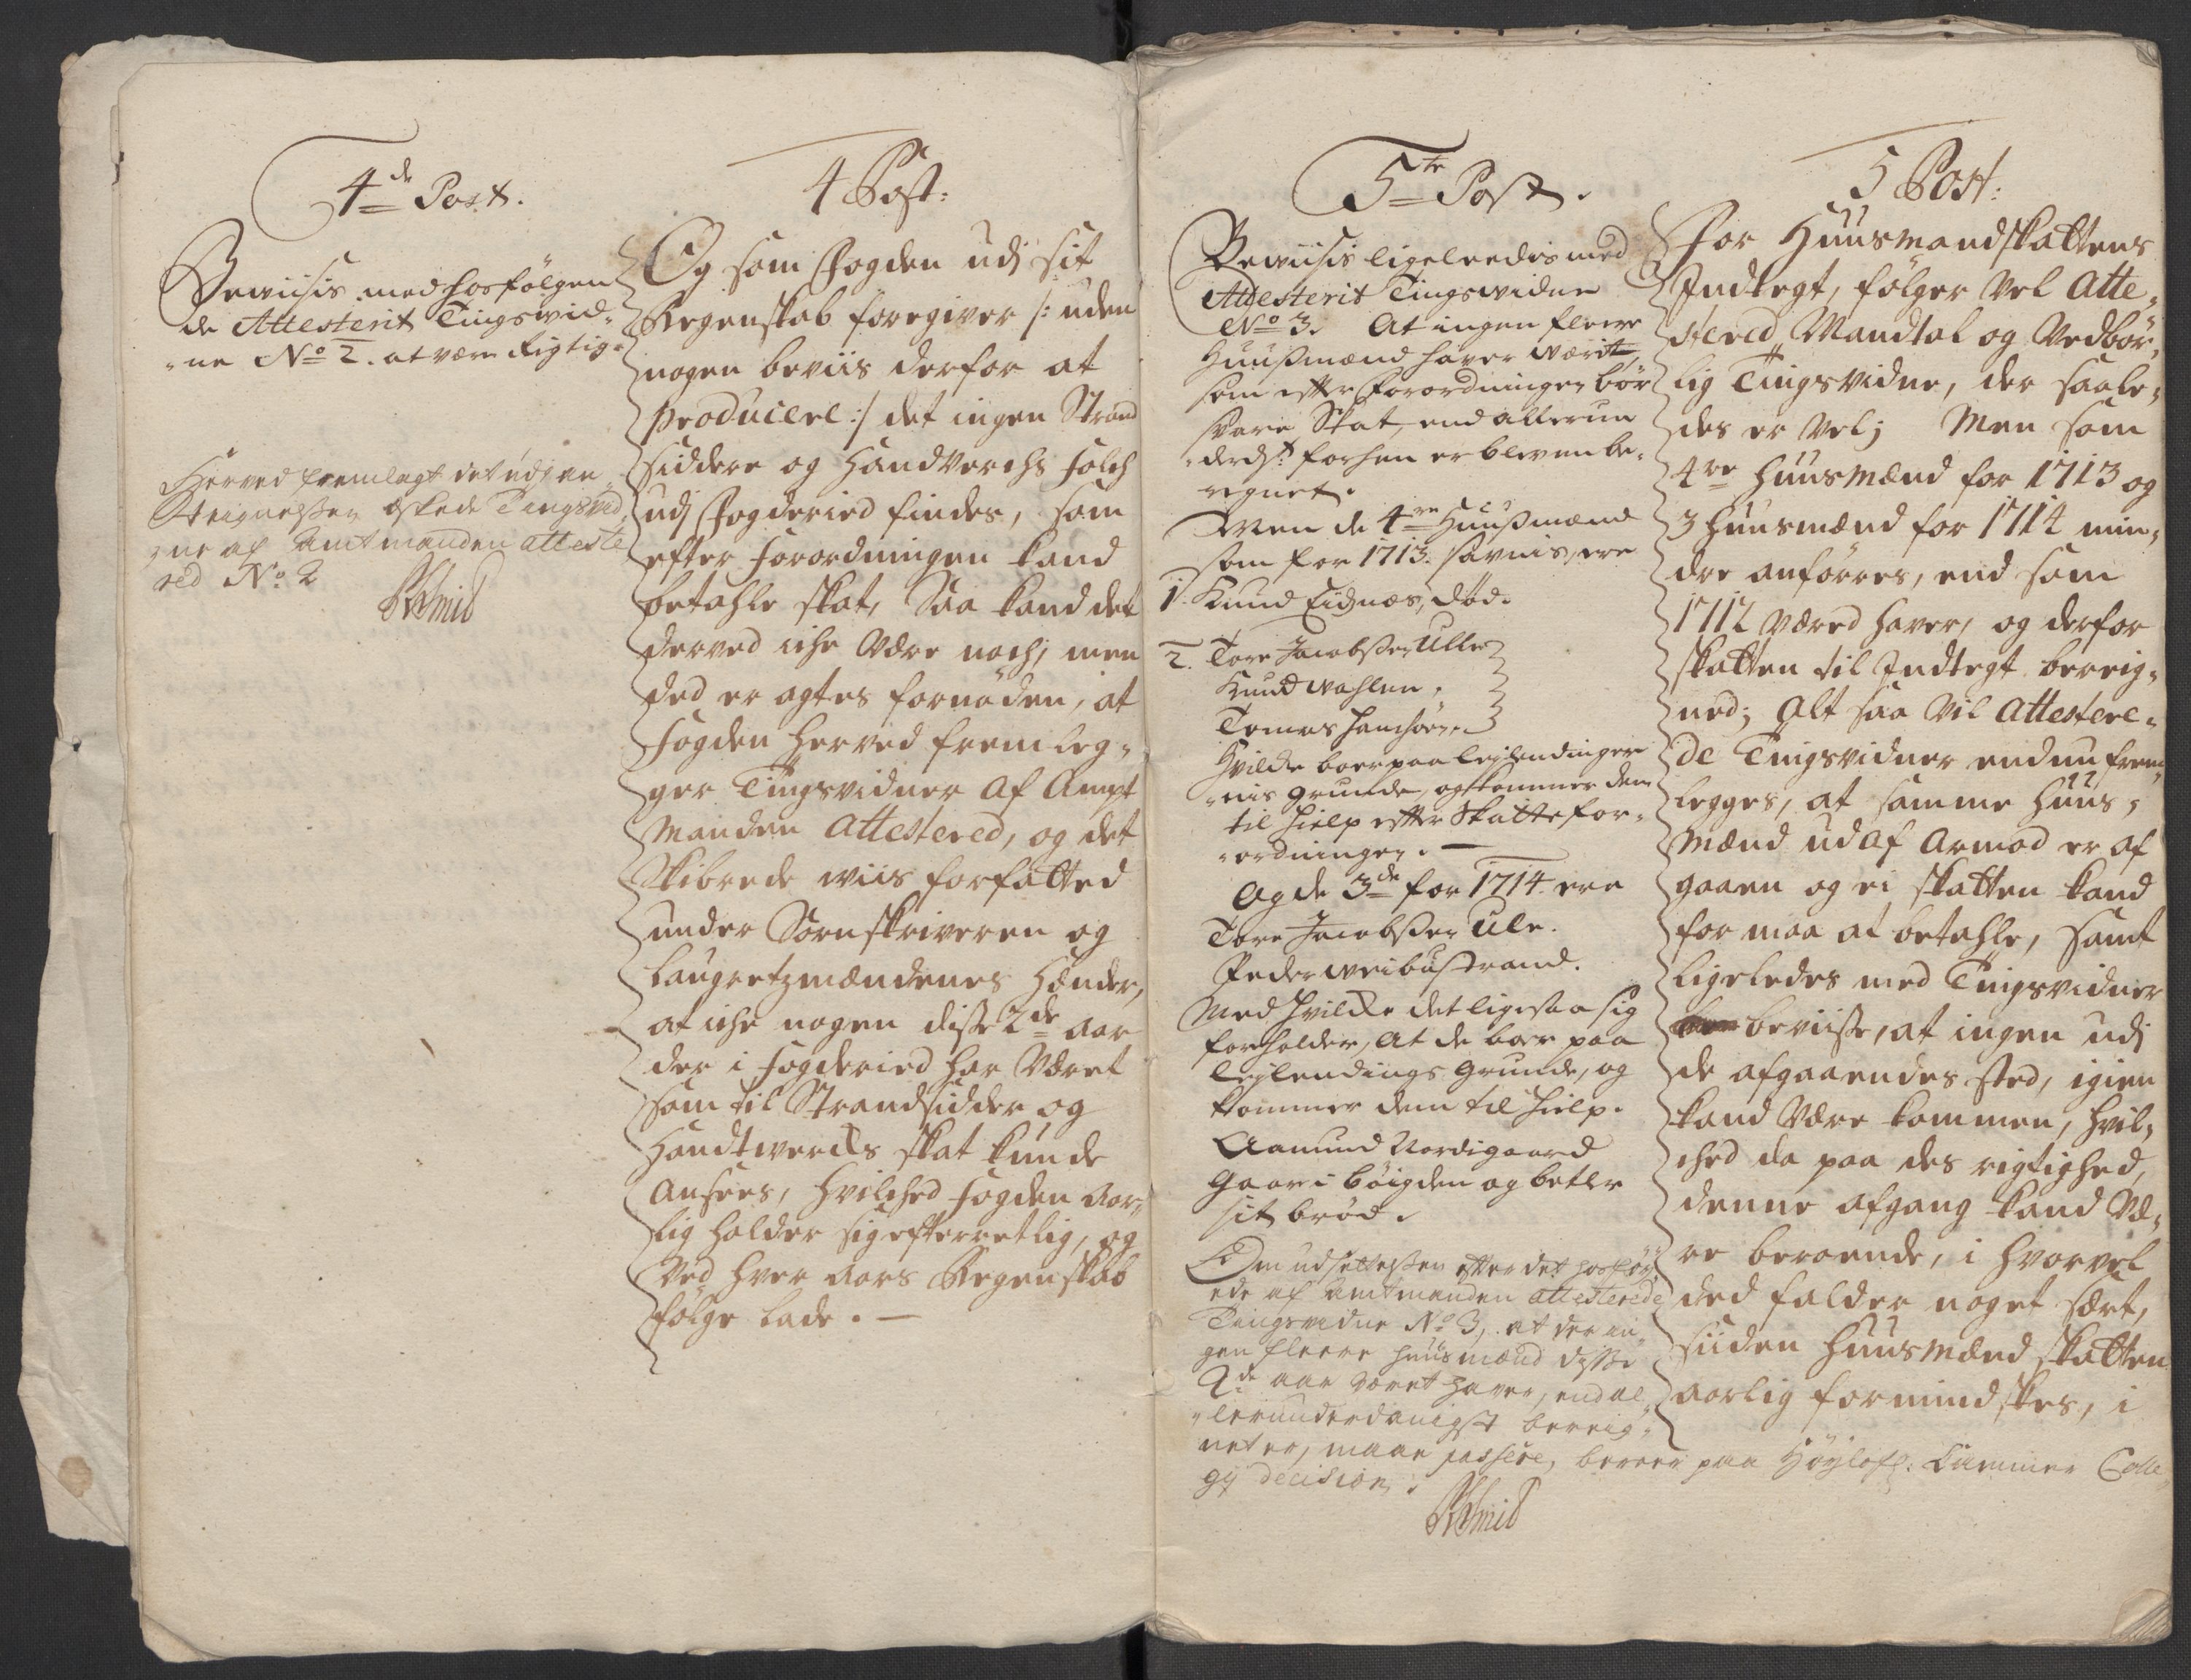 4de Post.
Beviisis med hosfölgen
de Attesterit Tingsvid-
ne No 2. at være Rigtig.
Herved fremlagt det udj an
tegnelßen æskede Tingsvid
ne af Amtmanden atteste
red No 2
4 Post:
Og som Fogden udj sit
Regenskab foregiver /: uden
nogen beviis derfor at
producere :/ det ingen Strand
siddere og HandVerchs folch
udj Fogderied findes, som
efter forordningen kand
betahle skat, Saa kand det
derved iche Være noch; men
ded er agtes fornöden, at
Fogden herved fremleg-
ger Tingsvidner af Ampt
Manden Attestered, og det
Skibrede wiis forfatted
under Sornskriveren og
Laugretzmændenes Hænder,
at iche nogen disse 2de aar
der i Fogderied har Været
som til Strandsidder og
Handtwercks skat kunde
Ansees, hvilched Fogden aar-
lig holder sig efterretlig, og
Ved hver Aars Regenskab
fölge lade.
5te Post.
Beviisis ligeleedis med
Attesterit Tingsvidne
No 3. At ingen fleere
Huußmænd haver wærit,
som efter Forordningen bör
svare Skat, end allerun
derdst: forhen er bleven be-
regnet.
Men de 4re Huußmænd
som for 1713. savnis, ere
1. Knud Eidnæs, död.
2. Tore Jacobßen Ulle
Knud Vahlen,
Tomas
Hvilcke boer paa leylendinger
nis grunde, og kommer dem
til hielp efter Skatte for-
ordningen.
Og de 3de for 1714. ere
Tore Jacobßen Ule.
Peder Weibustrand.
Med hvilcke det ligesaa sig
forholder, At de boer paa
Leylendings Grunde, og
kommer dem til hielp.
Aamund Nordigaard
Gaar i böigden og betler
sit bröd.
Om udsettelßen efter det hosför
ede af Amtmanden attesterede
Tingsvidne No 3, at der in-
gen fleere huusmænd disse
2de aar været haver, end al
lerunderdanigst bereig-
net er, maae passere, beroer paa Höylofl: Cammer Colle
gij decision.
5 Post:
For Huusmandskattens
Indtegt, fölger Vel Atte-
stered Mandtal og Vedbör-
lig Tingsvidne, der saale-
des er Vel; Men som
4re huusmænd for 1713 og
3 huusmænd for 1714 min-
dre anförres, end som
1712 Væred haver, og derfor
skatten til Indtegt bereig-
ned; Alt saa Vil Attestere-
de Tingsvidner endnu frem
legges, at samme huus-
mænd udaf Armod er af
gaaen og ei skatten kand
formaa at betahle, samt
ligeledes med Tingsvidner
beviisse, at ingen udj
de afgaaendes sted, igien
kand Være kommen, hvil-
ched da paa des rigtighed,
denne afgang kand Væ-
re beroende, i hvorvel
ded falder noget sært,
siiden huusmænd skatten
aarlig formindskes, i